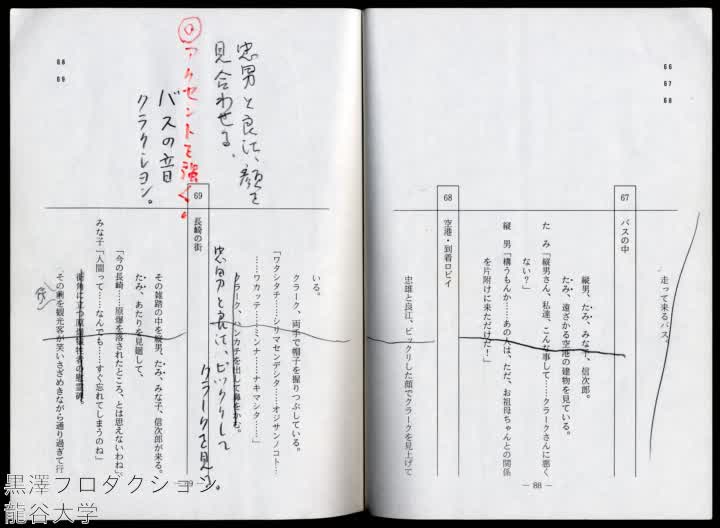 66
67
68
走って来るバス。
67
バスの中
縦男、たみ、みな子、信次郎。
たみ、遠ざかる空港の建物を見ている。
たみ「縦男さん、私達、こんな事して……クラークさんに悪くない?」
縦男「構うもんか……あの人は、ただ、お祖母ちゃんとの関係
を片附けに来ただけだ!」
68
空港・到着ロビイ
忠雄と良江、ビックリした顔でクラークを見上げて
— 88 —
68
69
忠男と良江、顔を
見合わせる。
◎アクセントを強く。
バスの音
クラクション。
いる。
クラーク、両手で帽子を握りつぶしている。
「ワタシタチ……シリマセンデシタ……オジサンノコト…
……ワカッテ……ミンナ……ナキマシタ……」
クラーク、ハンカチを出して鼻をかむ。
忠男と良江、ビックリして
クラークを見る。
69
長崎の街
その雑踏の中を縦男、たみ、みな子、信次郎が来る。
たみ、あたりを見廻して、
「今の長崎……原爆を落されたところ、とは思えないわね」
みな子「人間って……なんでも……すぐ忘れてしまうのね」
街角に立つ原爆犠牲者の慰霊碑。
その前を観光客が笑いさざめきながら通り過ぎて行
黒澤プロダクション
龍谷大学